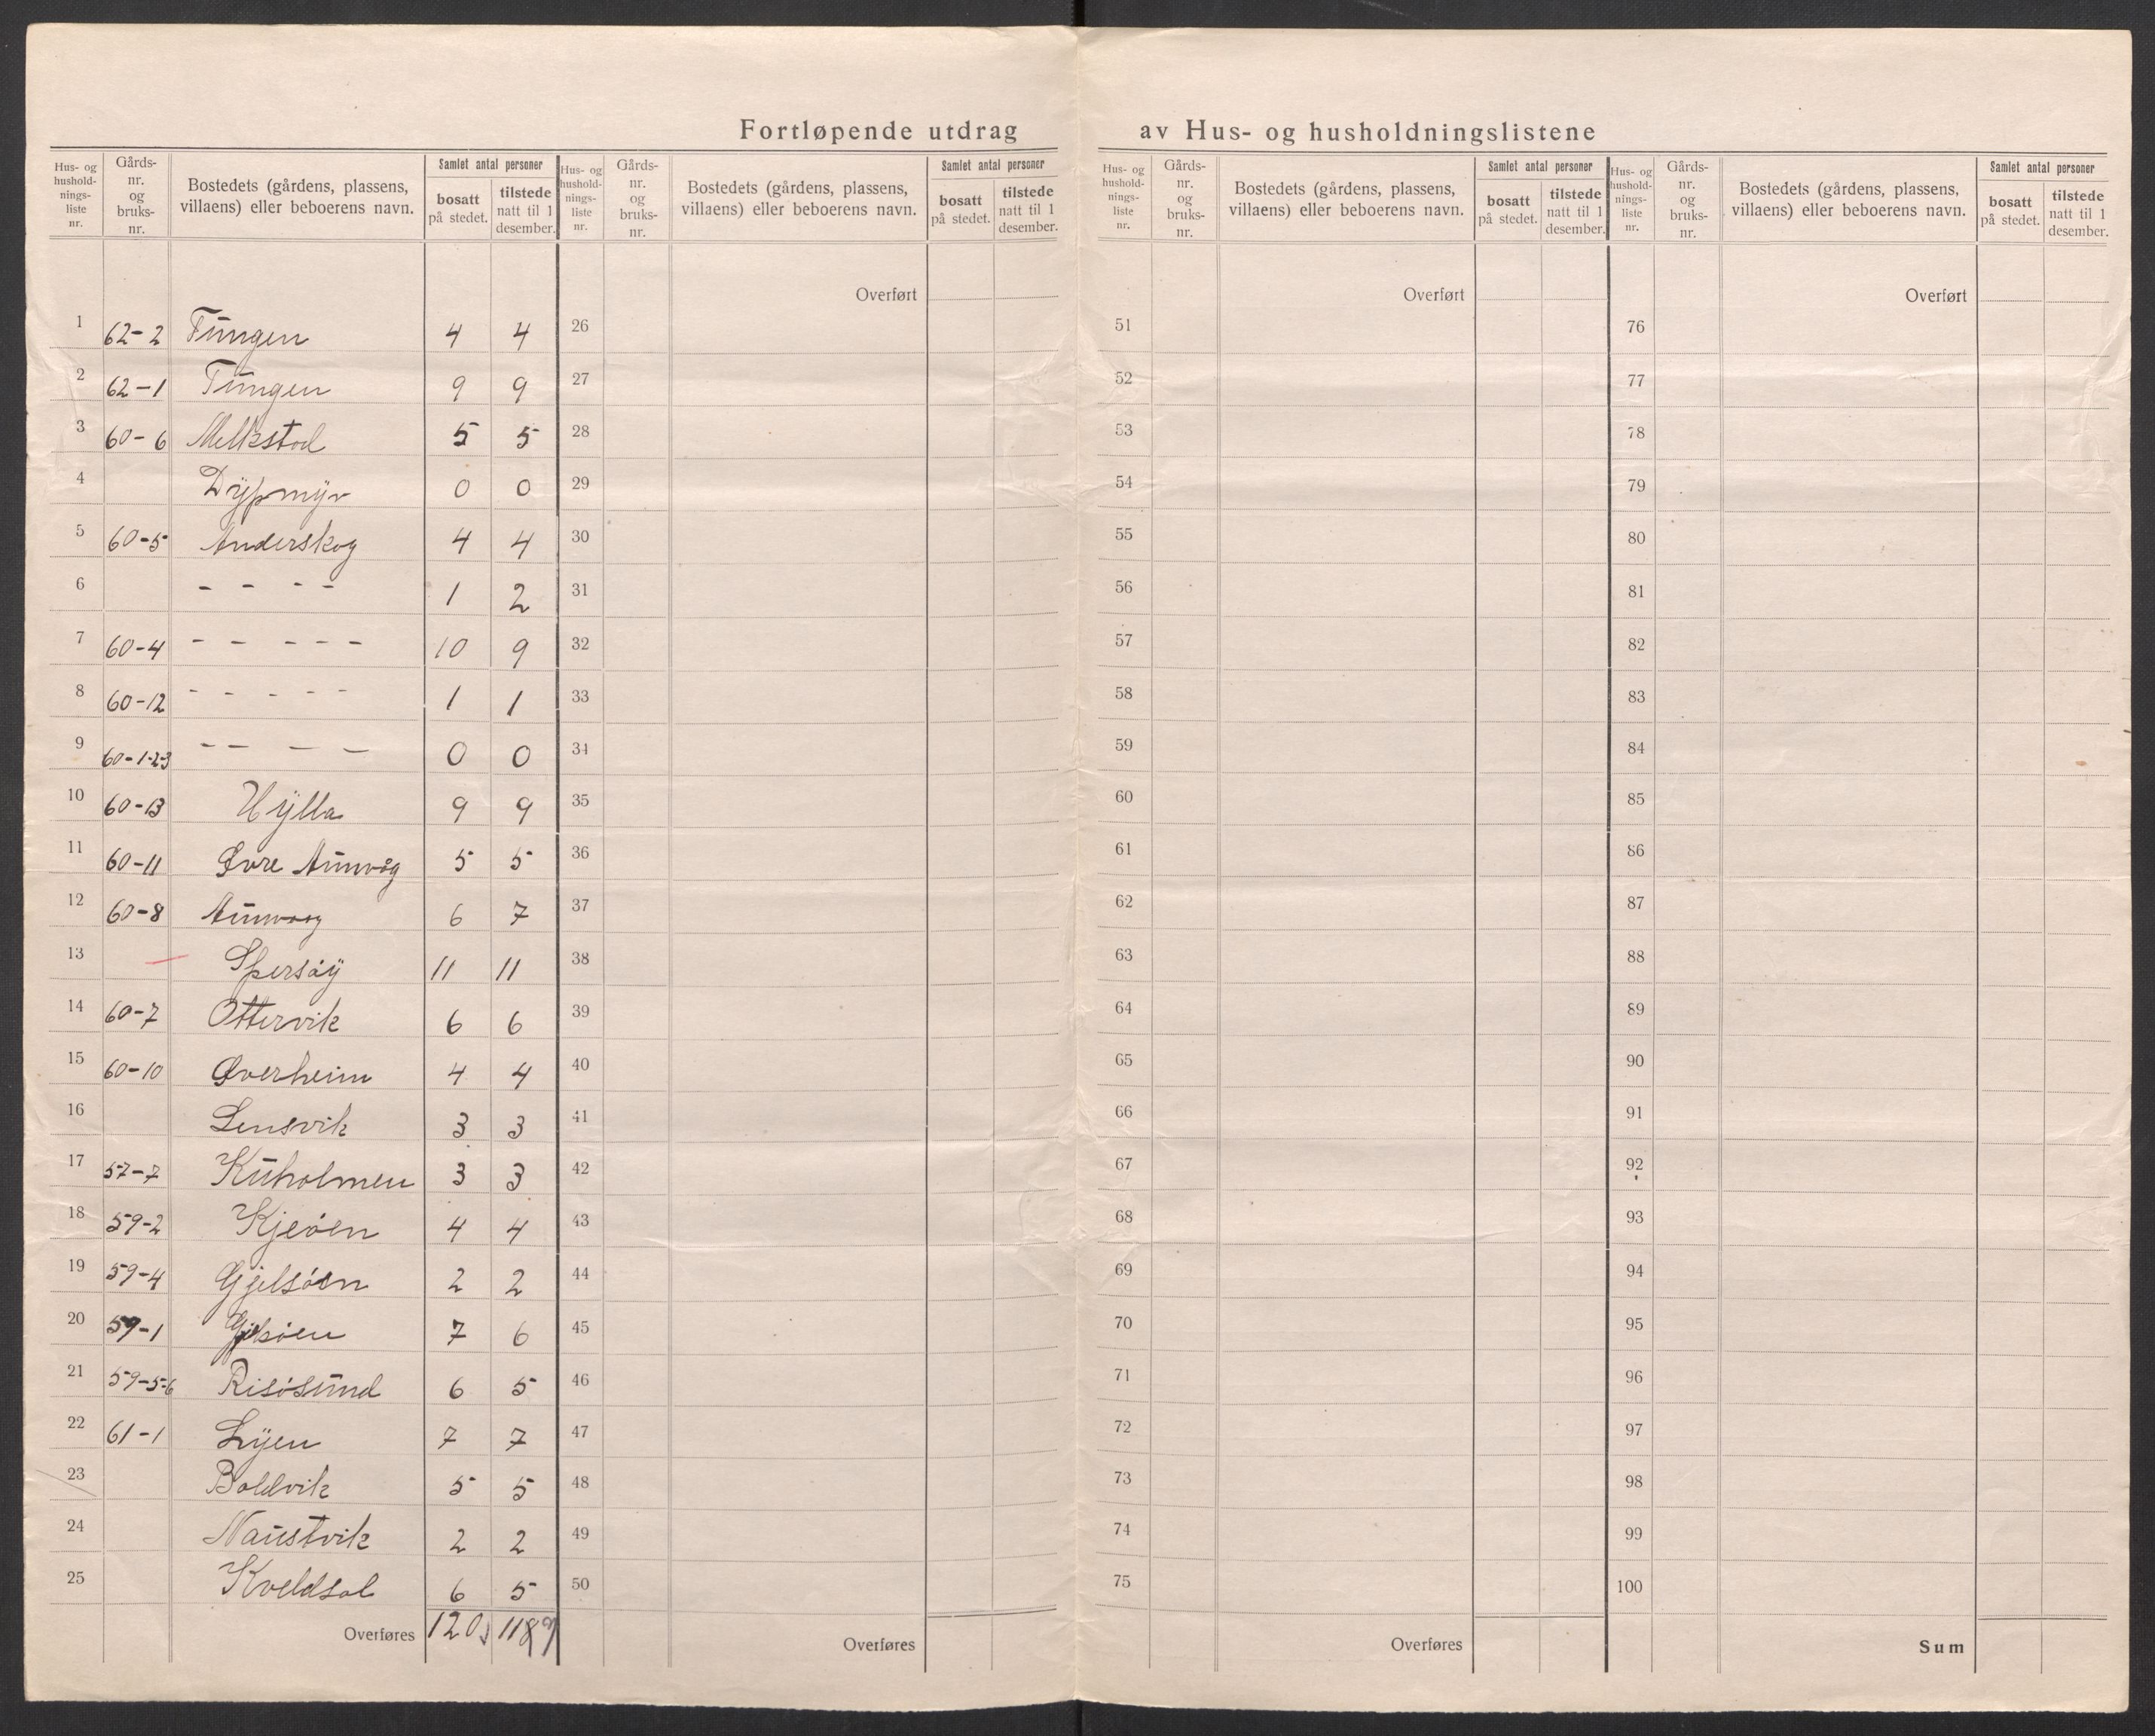 Fortløpende utdrag av Hus- og husholdningslistene
Hus- og hushold-nings-liste nr. Gårds-nr. og bruks-nr. Bostedets (gårdens, plassens, villaens) eller beboerens navn. Samlet antal personer bosatt på stedet. tilstede natt til 1 desember.
Hus- og hushold-nings-liste nr. Gårds-nr. og bruks-nr. Bostedets (gårdens, plassens, villaens) eller beboerens navn. Samlet antal personer bosatt på stedet. tilstede natt til 1 desember.
Hus- og hushold-nings-liste nr. Gårds-nr. og bruks-nr. Bostedets (gårdens, plassens, villaens) eller beboerens navn. Samlet antal personer bosatt på stedet. tilstede natt til 1 desember.
Hus- og hushold-nings-liste nr. Gårds-nr. og bruks-nr. Bostedets (gårdens, plassens, villaens) eller beboerens navn. Samlet antal personer bosatt på stedet. tilstede natt til 1 desember.
Overført Overført Overført
1 62-2 Tungen 4 4 26 51 76
2 62-1 Tungen 9 9 27 52 77
3 60-6 Melkstad 5 5 28 53 78
4 Dypmyr 0 0 29 54 79
5 60-5 Anderskog 4 4 30 55 80
6 - - - - 1 2 31 56 81
7 60-4 - - - - - 10 9 32 57 82
8 60-12 - - - - - 1 1 33 58 83
9 60-1-2-3 - - - - 0 0 34 59 84
10 60-13 Hylla 9 9 35 60 85
11 60-11 Øvre Aunvåg 5 5 36 61 86
12 60-8 Aunvaag 6 7 37 62 87
13 11 11 38 63 88
14 60-7 Ottervik 6 6 39 64 89
15 60-10 Øverheim 4 4 40 65 90
16 Lensvik 3 3 41 66 91
17 57-7 Kuholmen 3 3 42 67 92
18 59-2 Kjeøen 4 4 43 68 93
19 59-4 Gjelsøen 2 2 44 69 94
20 59-1 7 6 45 70 95
21 59-5-6 Risøsund 6 5 46 71 96
22 61-1 Lyen 7 7 47 72 97
23 Boldvik 5 5 48 73 98
24 Naustvik 2 2 49 74 99
25 Kveldsol 6 5 50 75 100
Overføres 120 Overføres Overføres Sum